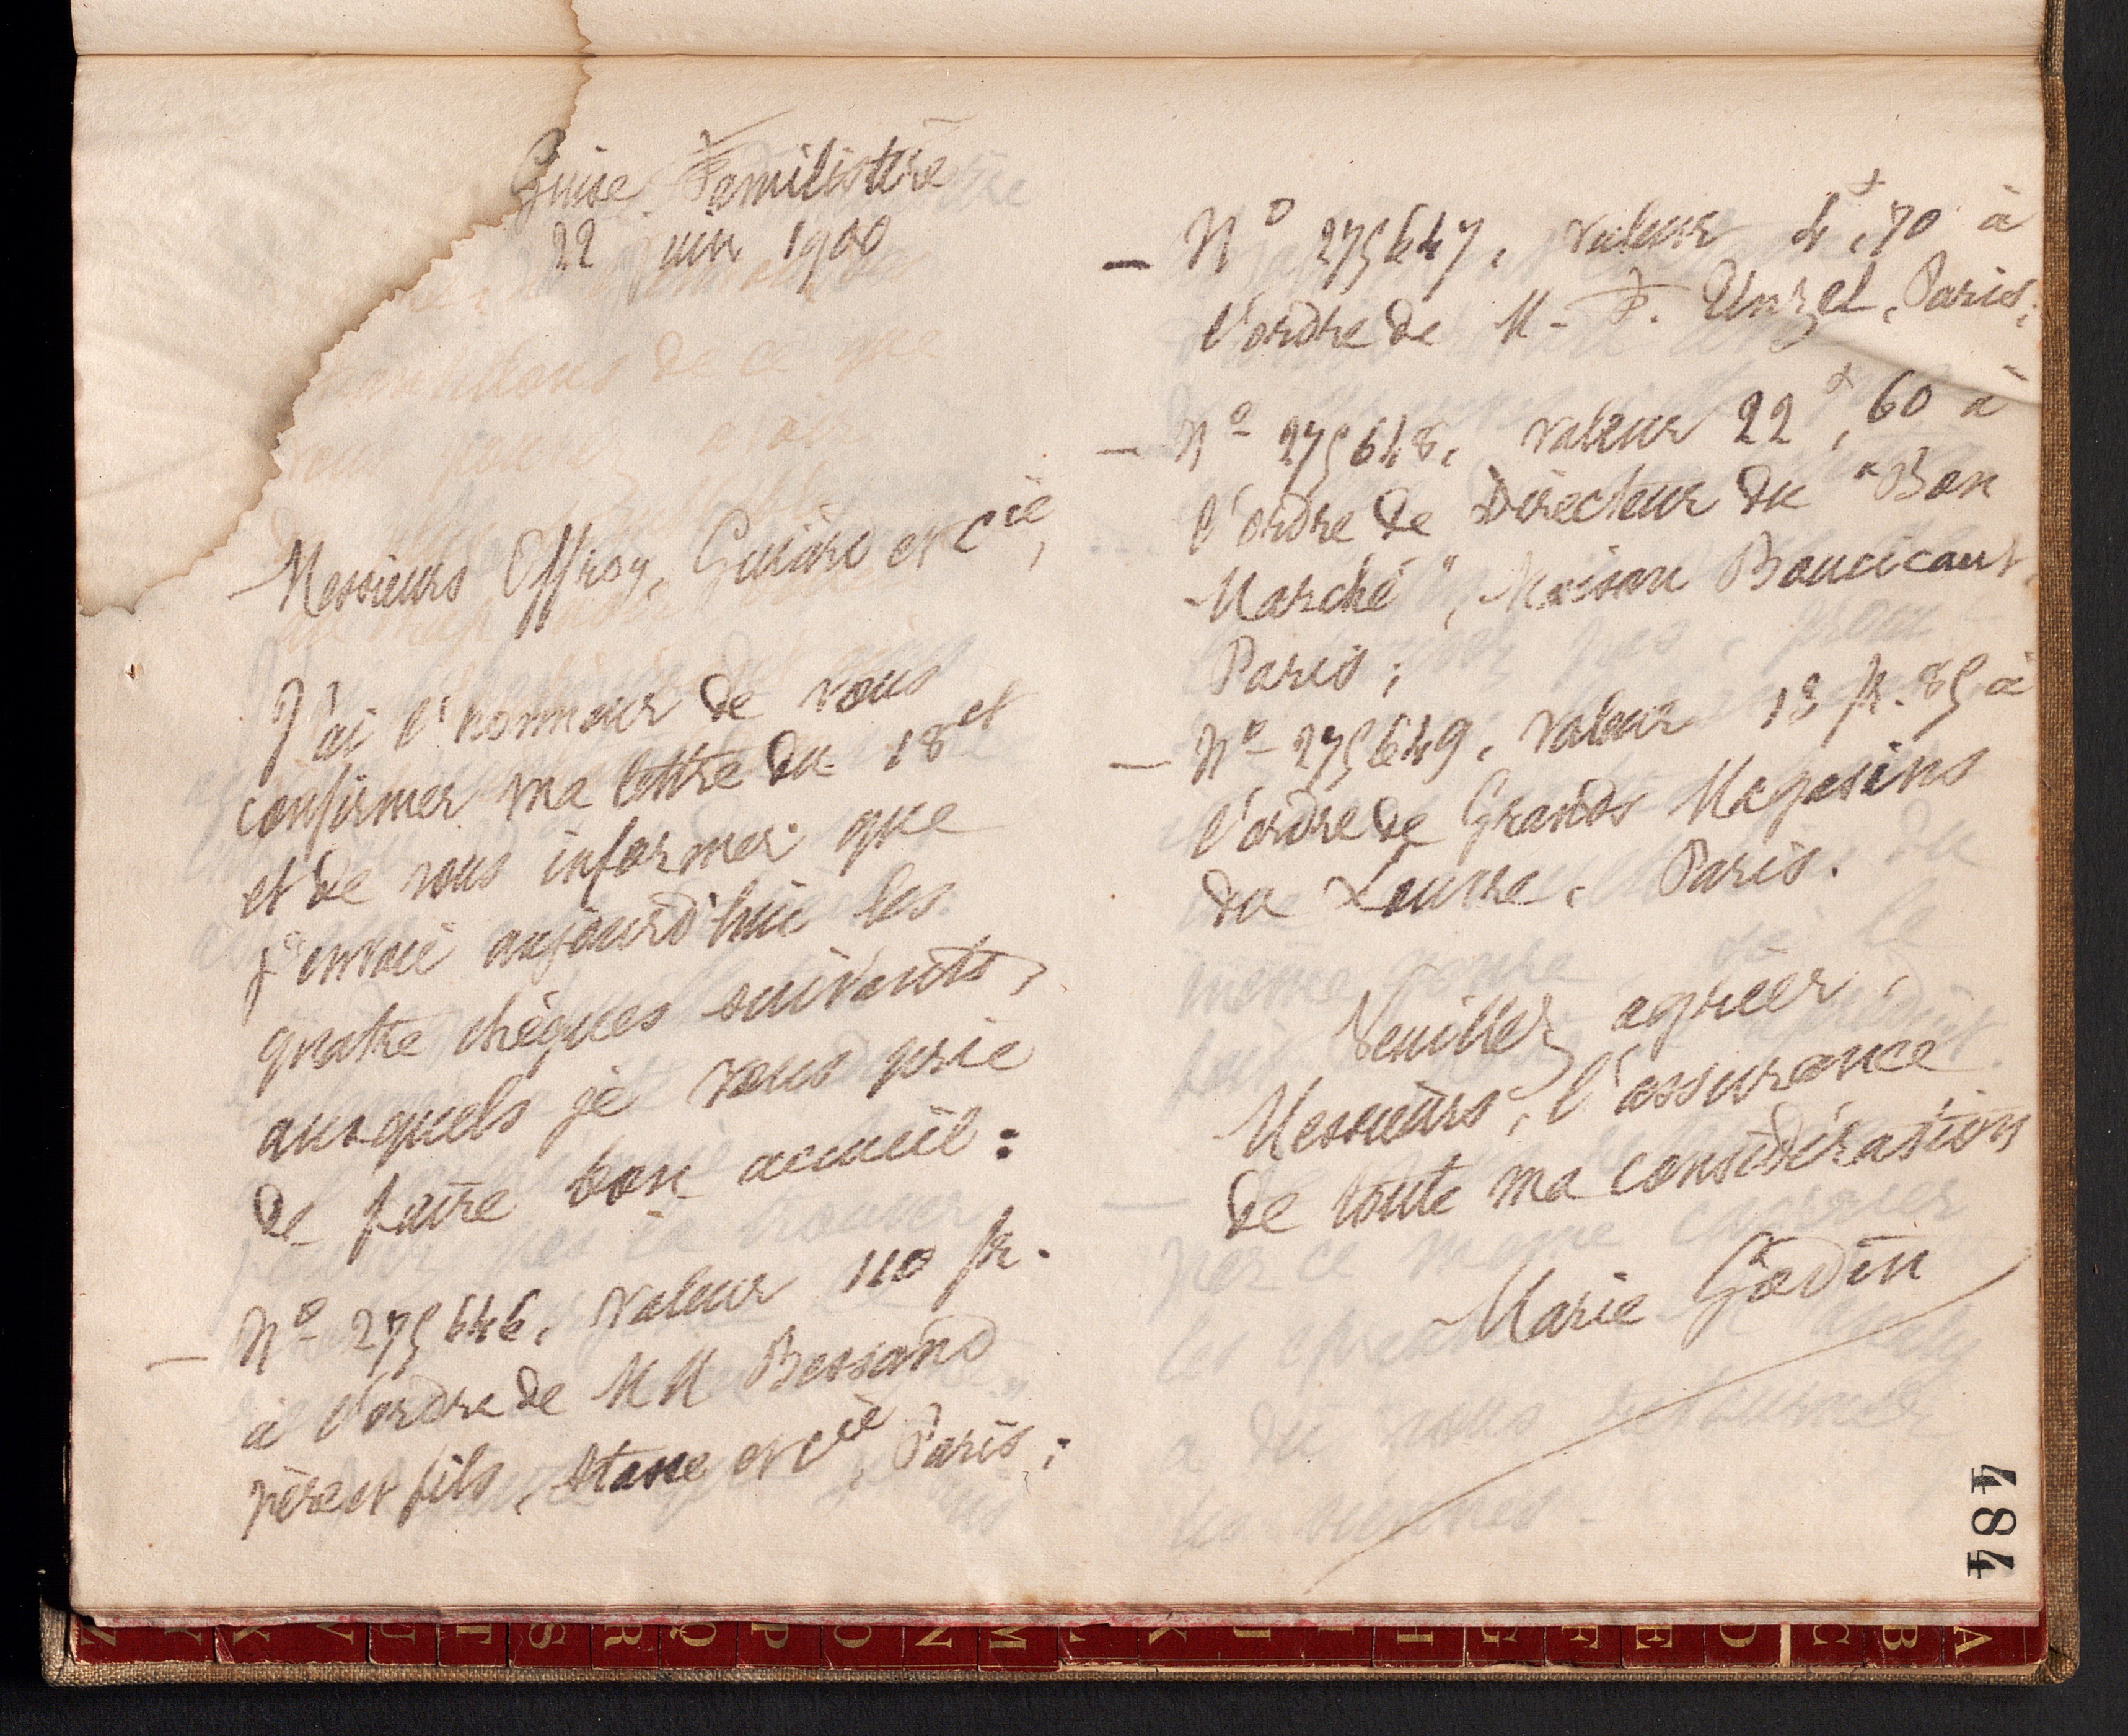 Guise Familistère
22 juin 1900
Messieurs Offroy, Guiard et Cie,
J'ai l'honneur de vous
confirmer ma lettre du 18 ct
et de vous informer que
j'envoie aujourd'hui les
quatre chèques suivants,
auxquels je vous prie
de faire bon accueil :
— No 275646, valeur 110 fr.
à l'ordre de MM Bessand
père et fils, Stasse et Cie, Paris ;
— No 275647, valeur 4f,70 à
l'ordre de M. F. Unzel, Paris ;
— No 275648, valeur 22f,60 à
l'ordre de Directeur du "Bon
Marché", Maison Boucicaut,
Paris ;
— No 275649, valeur 13 fr. 85 à
l'ordre de Grands Magasins
du Louvre, Paris.
Veuillez agréer,
Messieurs, l'assurance
de toute ma considération
Marie Godin
484
Z Y X V U T S R Q P O N M L K J I H G F E D C B A